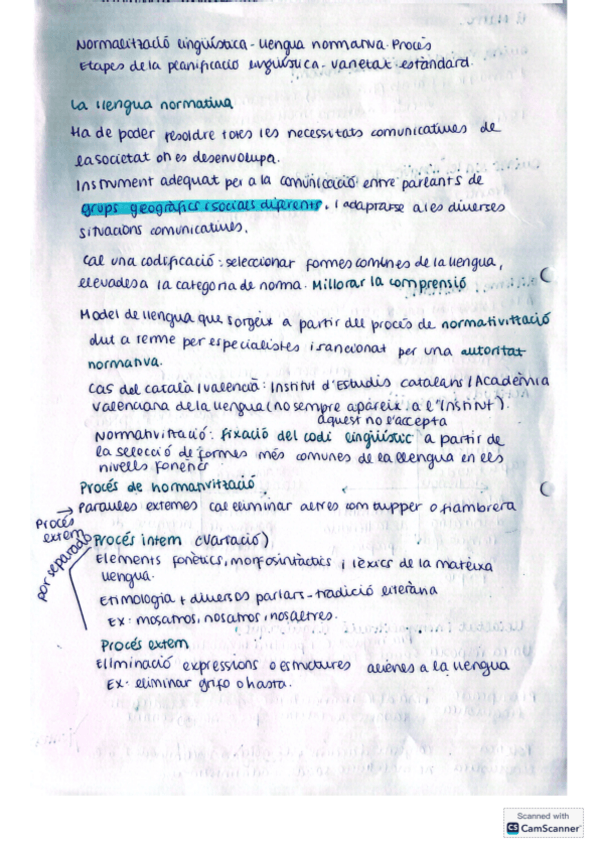 Normalització lingüística - Llengua normativa. Procés
Etapes de la planificació lingüística - varietat estàndard.
La llengua normativa
Ha de poder resoldre totes les necessitats comunicatives de
la societat on es desenvolupa.
Instrument adequat per a la comunicació entre parlants de
grups geogràfics i socials diferents, i adaptarse a les diverses
situacions comunicatives.
Cal una codificació: seleccionar formes comúnes de la llengua,
elevades a la categoria de norma. Millorar la comprensió
Model de llengua que sorgeix a partir del procés de normativització
dut a terme per especialistes i sancionat per una autoritat
normativa.
Cas del català i valencià: Institut d'Estudis catalans / Acadèmia
Valenciana de la Llengua (no sempre apareix a l'Institut).
aquest no l'accepta
Normativització: fixació del codi lingüístic a partir de
la selecció de formes més comunes de la llengua en els
nivells fonètic
Procés de normativització
→ Paraules externes cal eliminar altres, com tupper o fiambrera
Procés extern
por separado
Procés intern (variació)
Elements fonètics, morfosintàctics i lèxics de la mateixa
llengua.
Etimologia + diversos parlars - tradició literària
Ex: mosatros, nosatros, nosaltres.
Procés extern
Eliminació expressions o estructures alienes a la llengua
Ex. eliminar grifo o hasta.
Scanned with
CS CamScanner